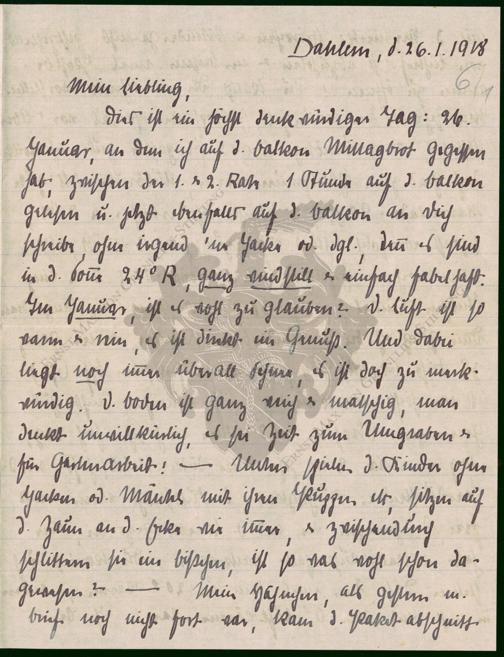 Dahlem, d. 26.1.1918
6/1
Mein liebling,
Dies ist ein höchst denkwürdiger Tag: 26.
Januar, an dem ich auf d. balkon Mittagbrot gegessen
hab, zwischen der 1. & 2. Rate 1 Stunde auf d. balkon
gelesen u. jetzt ebenfalls auf d. balkon an dich
schreibe, ohne irgend 'ne Jacke od. dgl., denn es sind
in d. Sonne 24° R, ganz windstill & einfach fabelhaft.
Im Januar, ist es wohl zu glauben? d. Luft ist so
warm & rein, es ist direkt ein Genuss. Und dabei
liegt noch immer überall Schnee, es ist doch zu merk-
würdig. d. boden ist ganz weich & matschig, man
denkt unwillkürlich, es sei Zeit zum Umgraben &
für Gartenarbeit! — Unten spielen d. Kinder ohne
Jacken od. Mäntel mit ihren Puppen etc, sitzen auf
d. Zaun an d. Ecke wie immer, & zwischendurch
schlittern sie ein bißchen, ist so was wohl schon da-
gewesen? — Mein Hähnchen, als gestern m.
brief noch nicht fort war, kam d. Paketabschnitt